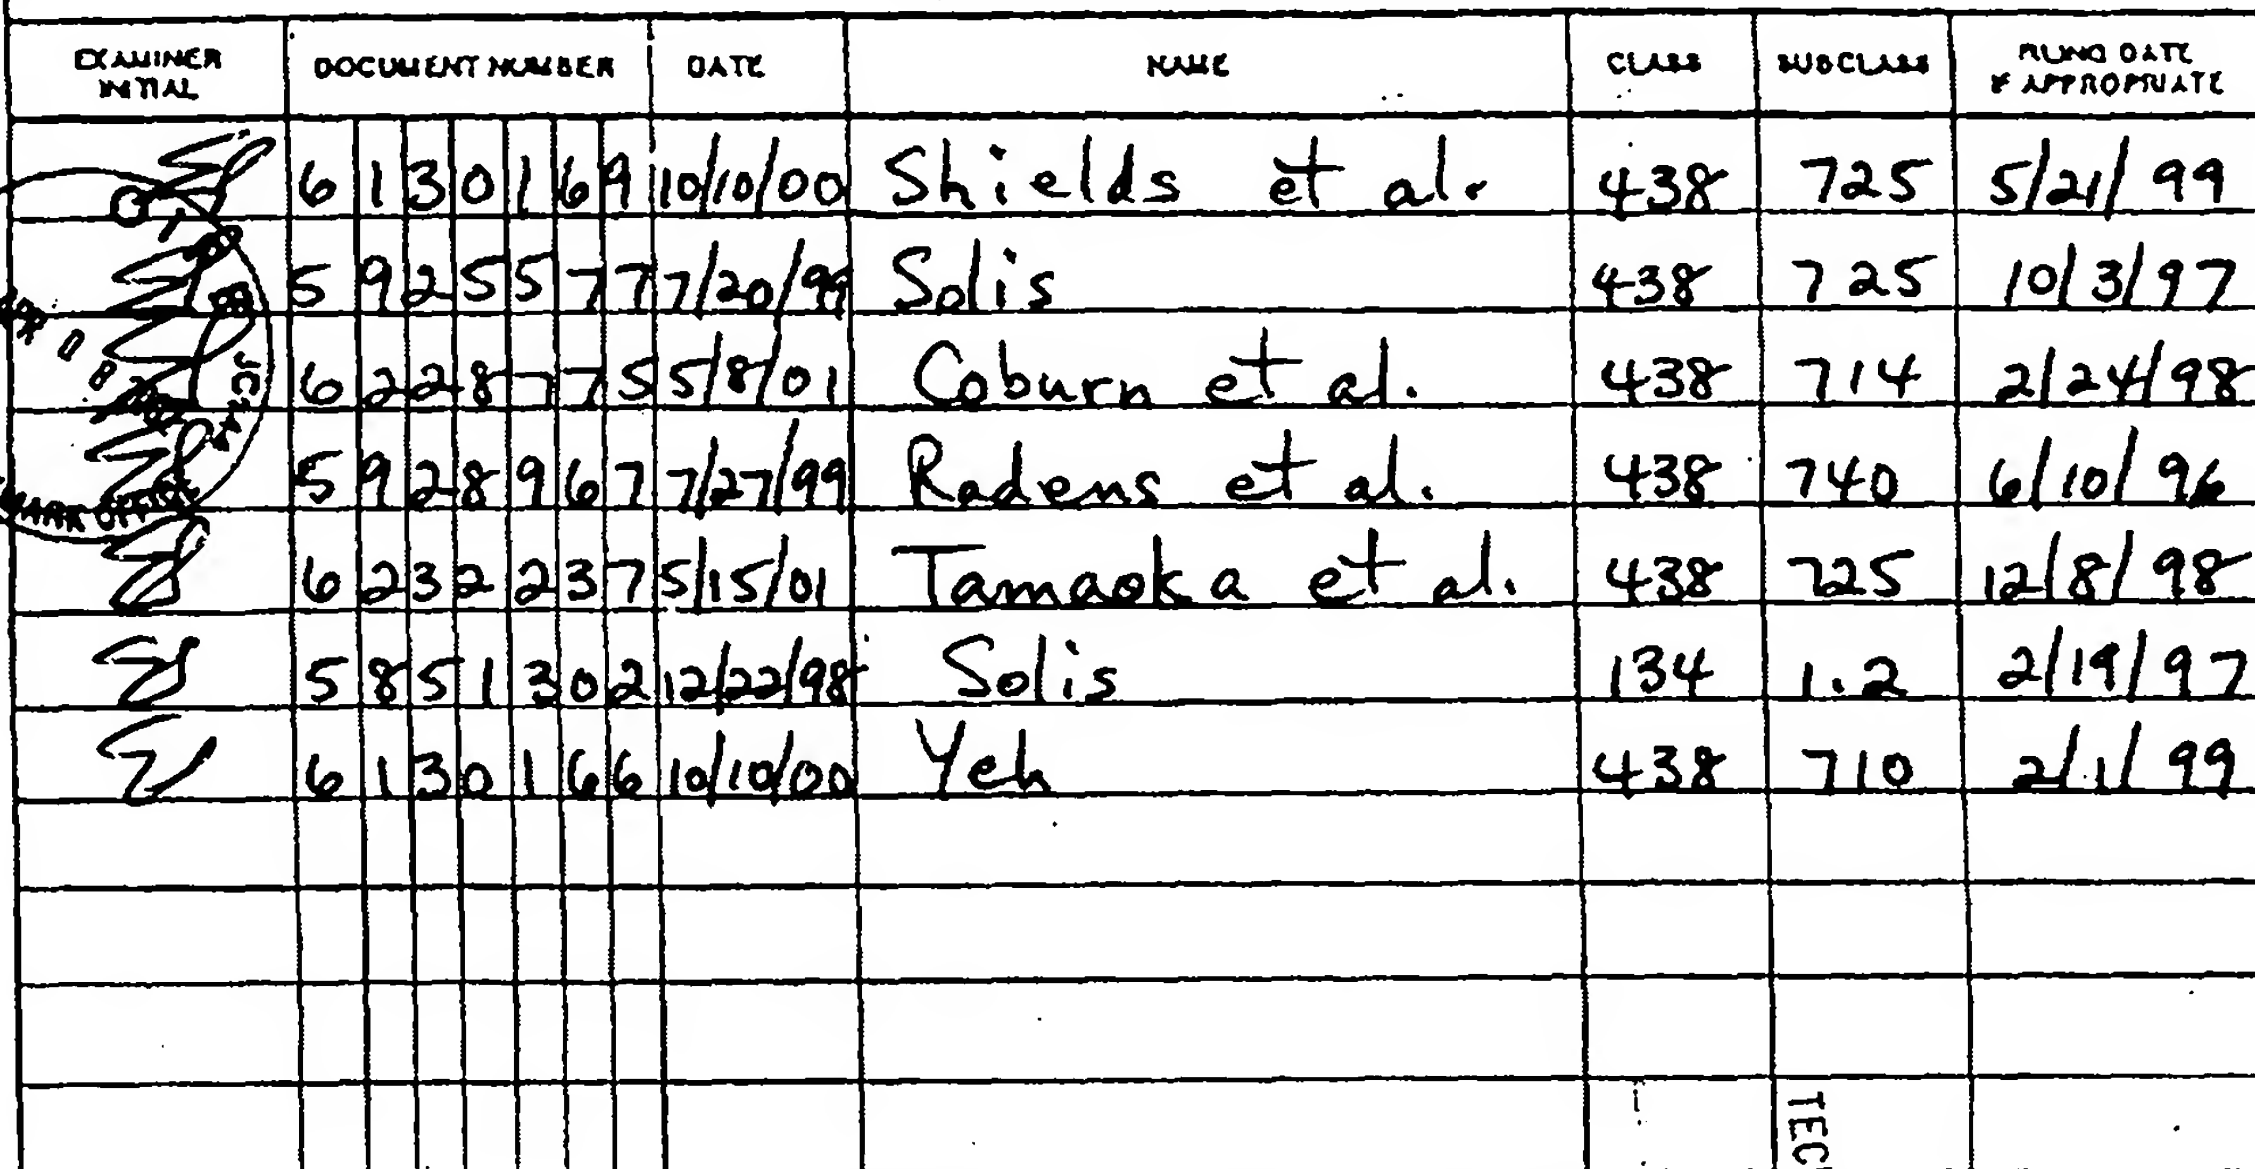 EXAMINER INITIAL DOCUMENT NUMBER DATE NAME CLASS SUBCLASS FILING DATE IF APPROPRIATE
6130169 10/10/00 Shields et al. 438 725 5/21/99
5925577 7/20/99 Solis 438 725 10/3/97
6228775 5/8/01 Coburn et al. 438 714 2/24/98
5928967 7/27/99 Radens et al. 438 740 6/10/96
6232237 5/15/01 Tamaoka et al. 438 725 12/8/98
5851302 12/22/98 Solis 134 1.2 2/19/97
6130166 10/10/00 Yeh 438 710 2/1/99
TEC